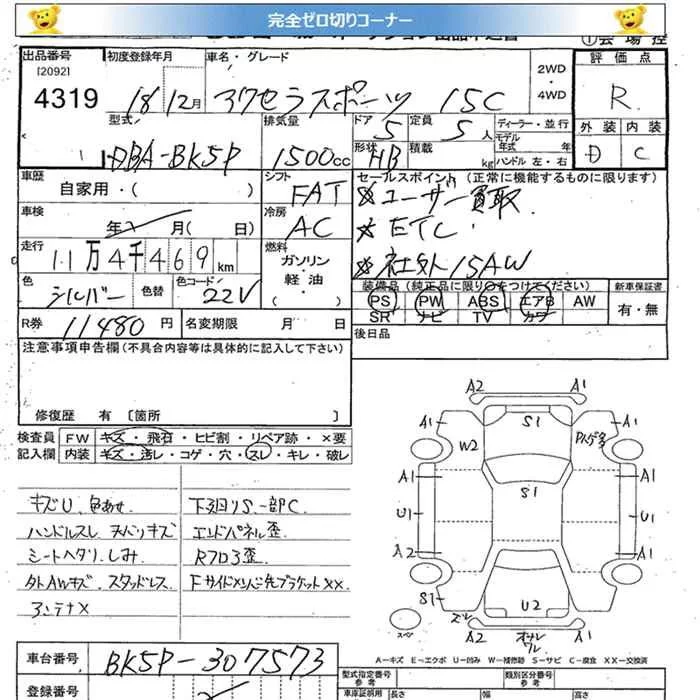 完全ゼロ切りコーナー
出品番号 初度登録年月 車名・グレード 2WD・4WD 評価点
[2092]
4319 18 12月 アクセラスポーツ 15C R
型式 排気量 ドア 5 定員 5人 ディーラー・並行 外装 内装
モデル年式 年
DBA-BK5P 1500cc 形状 HB 積載 kg ハンドル 左・右 D C
車歴 シフト セールスポイント (正常に機能するものに限ります)
自家用・( ) FAT ※ユーザー買取
車検 冷房 ※ETC
年 月( 日) AC ※社外15AW
走行 燃料
11万4千469km ガソリン・軽油・( )
色 シルバー 色替 色コード 22V
装備品(純正品に限り○をつけてください) 新車保証書
PS PW ABS エアB AW 有・無
SR ナビ TV カワ
R券 11480円 名変期限 月 日 後日品
注意事項申告欄(不具合内容等は具体的に記入して下さい)
修復歴 有 〔箇所 〕
検査員 FW キズ・飛石・ヒビ割・リペア跡・×要
記入欄 内装 キズ・汚レ・コゲ・穴・スレ・キレ・破レ
キズU、色あせ 下廻りS、一部C
ハンドルスレ
エンドパネル歪
シートヘタリ、しみ Rフロ3歪
外AWキズ、スタッドレス
アンテナ×
A2 A1
A1 S1 A1
W2
A1 S1 A1
U1 U1
A2 A1
S1 U2
A2 A1
スペア
A-キズ E-エクボ U-凹み W-補修跡 S-サビ C-腐食 XX-交換済
車台番号 BK5P-307573
登録番号
型式指定番号 参考 類別区分番号 参考
車庫証明用 長さ 幅 高さ